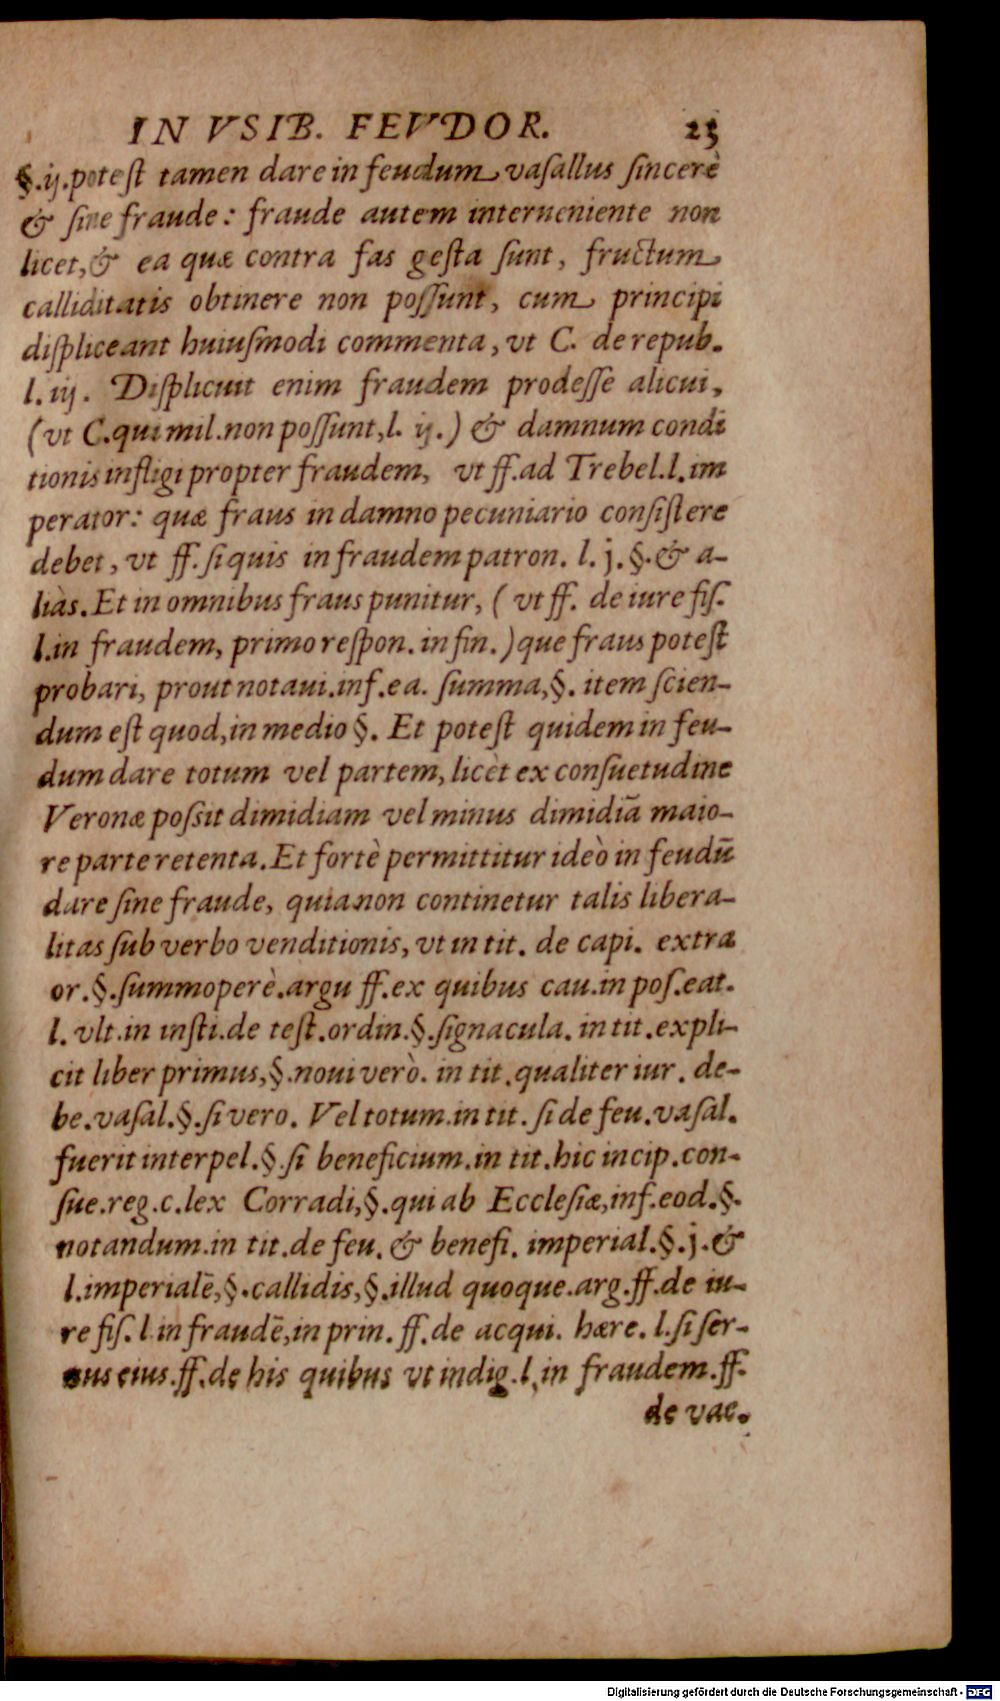 IN VSIB. FEVDOR. 23
§.ij.poteſt tamen dare in feudum vaſallus ſincerè
& ſine fraude: fraude autem interueniente non
licet,& ea quæ contra fas geſta ſunt, fructum
calliditatis obtinere non poſſunt, cum principi
diſpliceant huiuſmodi commenta, vt C. de repub.
l. iij. Diſplicuit enim fraudem prodeſſe alicui,
(vt C.qui mil.non poſſunt,l. ij.) & damnum condi
tionis infligi propter fraudem, vt ff.ad Trebel.l.im
perator: quæ fraus in damno pecuniario conſiſtere
debet, vt ff. ſi quis in fraudem patron. l. j. §.& a-
liàs. Et in omnibus fraus punitur, ( vt ff. de iure fiſ.
l.in fraudem, primo reſpon. in fin.) que fraus poteſt
probari, prout notaui.inf.ea. ſumma,§. item ſcien-
dum eſt quod,in medio §. Et poteſt quidem in feu-
dum dare totum vel partem, licèt ex conſuetudine
Veronæ poſsit dimidiam vel minus dimidiā maio-
re parte retenta. Et fortè permittitur ideò in feudū
dare ſine fraude, quia non continetur talis libera-
litas ſub verbo venditionis, vt in tit. de capi. extra
or.§.ſummoperè.argu ff.ex quibus cau.in poſ.eat.
l. vlt.in inſti.de teſt.ordin.§.ſignacula. in tit.expli-
cit liber primus,§.noui verò. in tit.qualiter iur. de-
be.vaſal.§.ſi vero. Vel totum.in tit. ſi de feu.vaſal.
fuerit interpel.§.ſi beneficium.in tit.hic incip.con-
ſue.reg.c.lex Corradi,§.qui ab Eccleſiæ,inf.eod.§.
notandum.in tit.de feu. & benefi. imperial.§.j.&
l.imperialē,§.callidis,§.illud quoque.arg.ff.de iu-
re fiſ.l.in fraudē,in prin.ff.de acqui. hære. l.ſi ſer-
uus eius.ff.de his quibus vt indig.l.in fraudem.ff.
de vac.
Digitalisierung gefördert durch die Deutsche Forschungsgemeinschaft - DFG